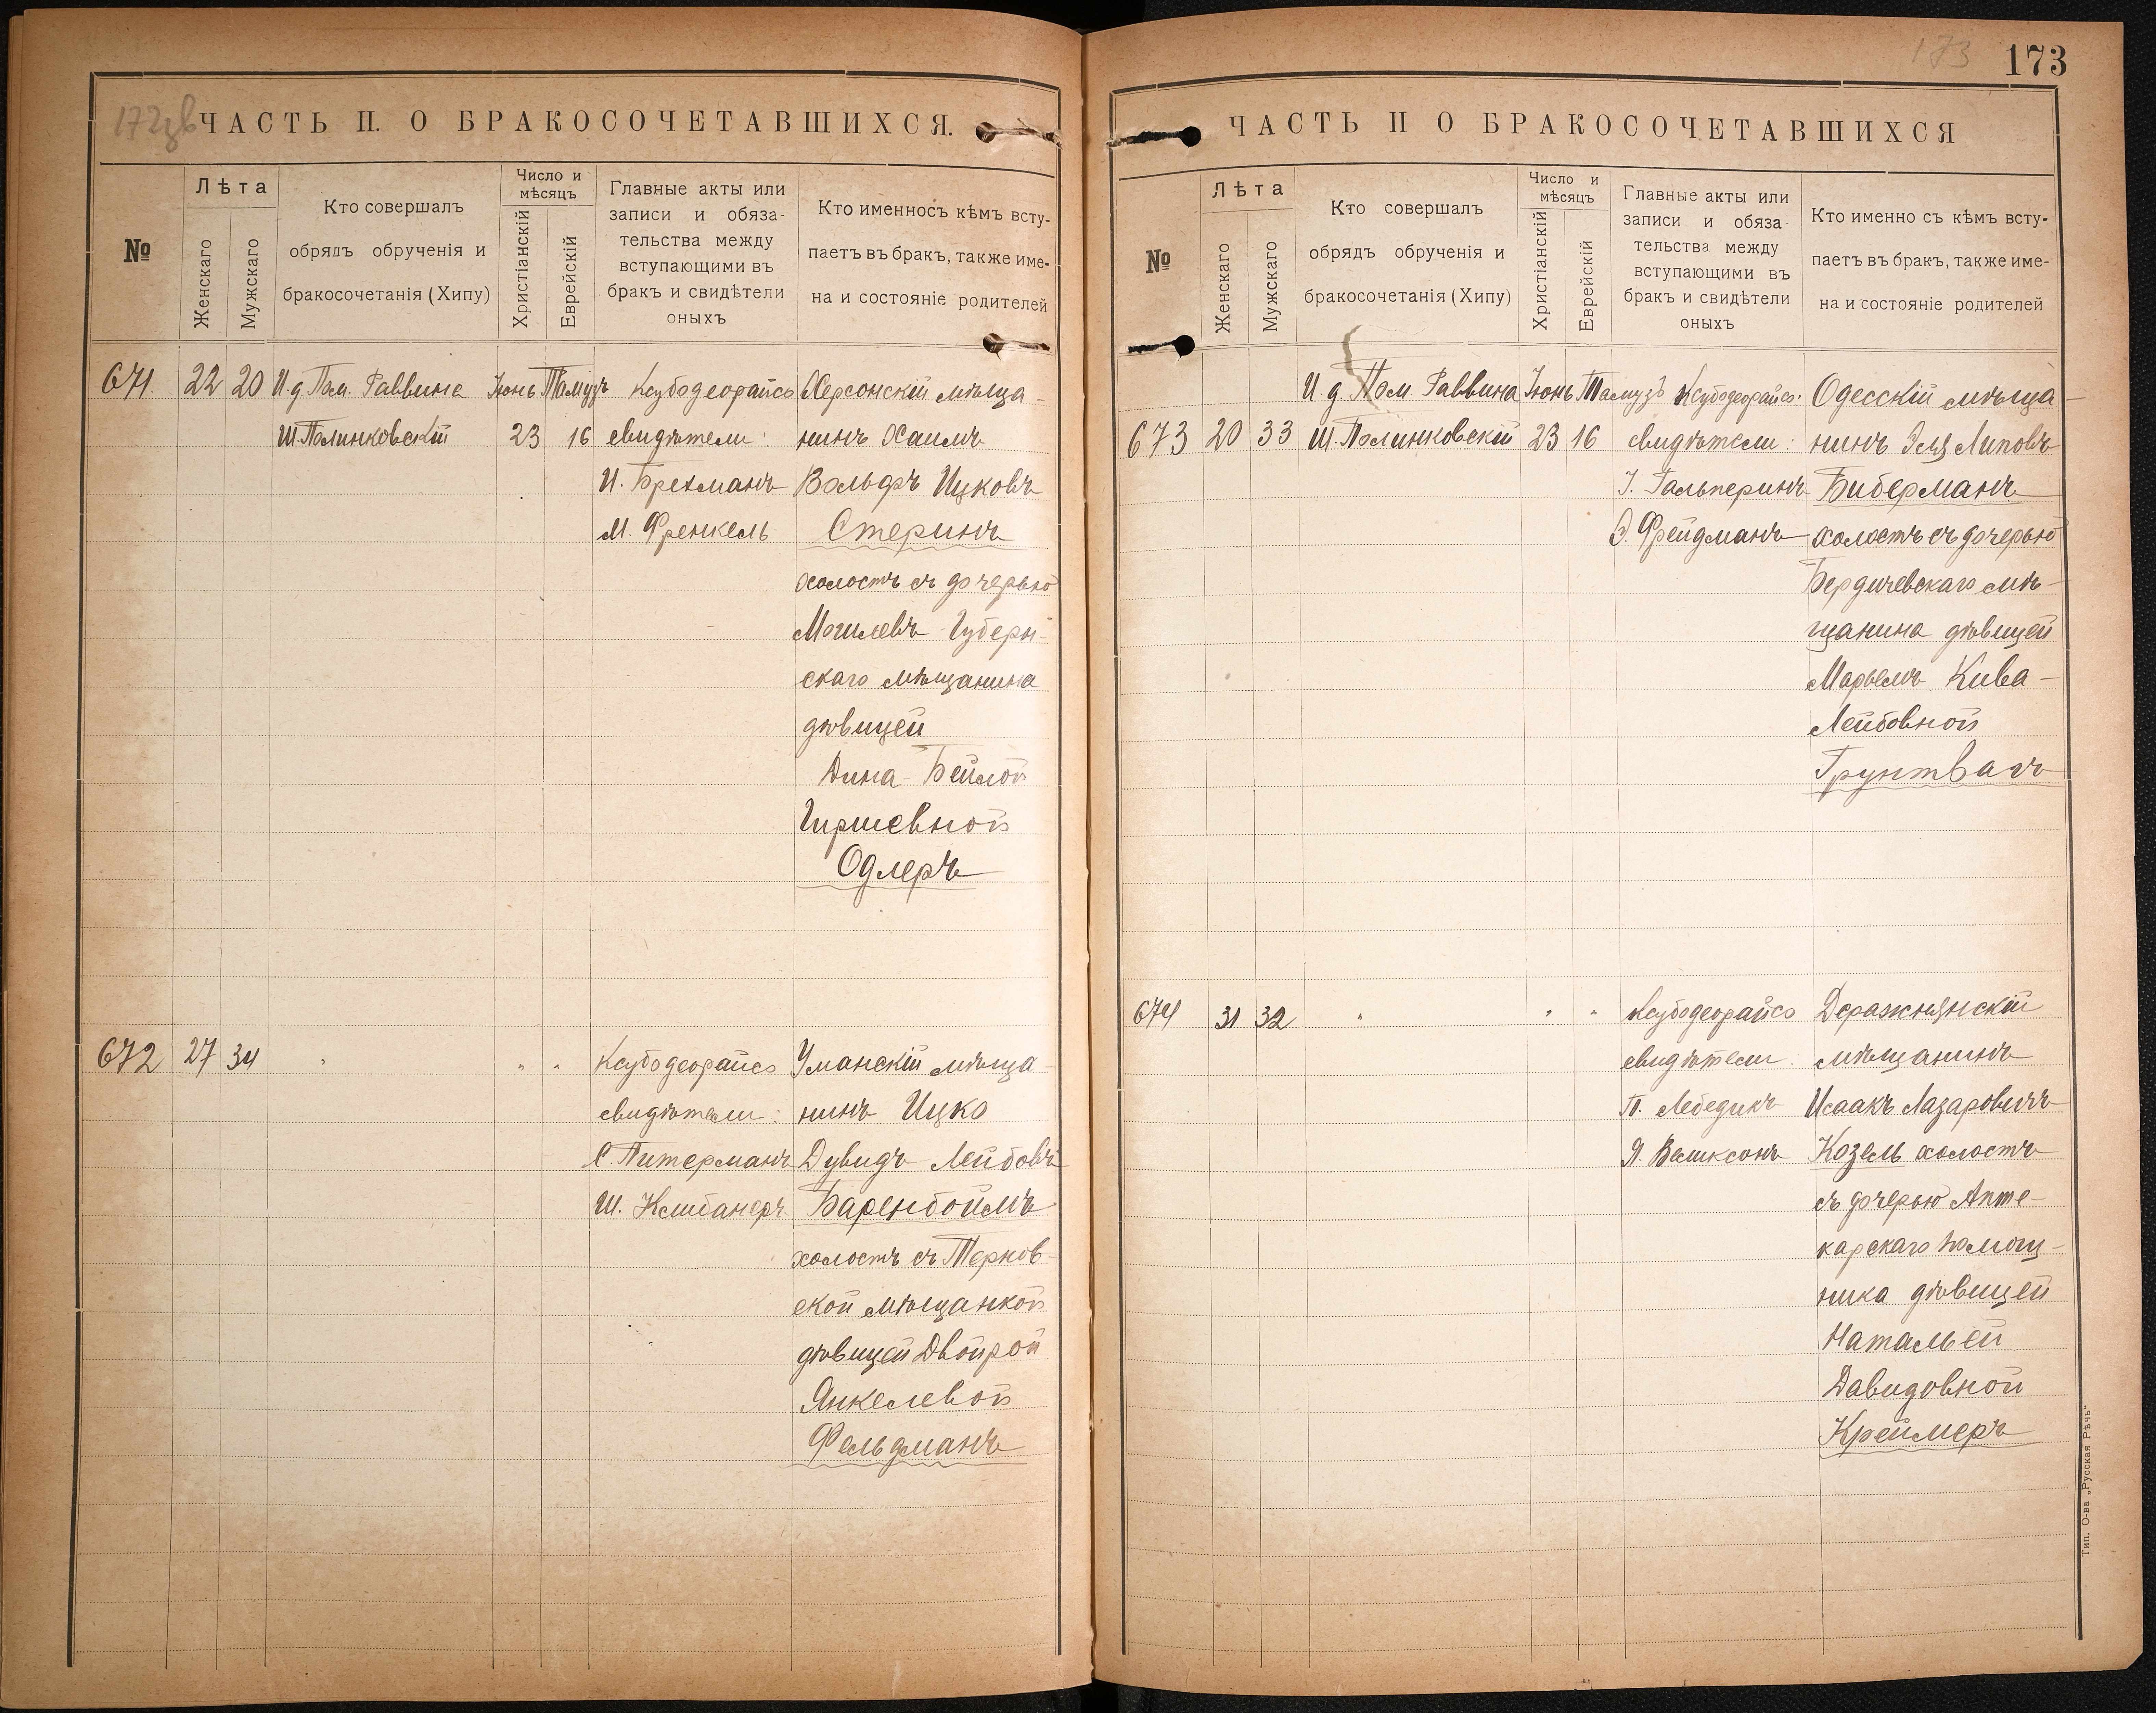 172зв
ЧАСТЬ II. О БРАКОСОЧЕТАВШИХСЯ.
№
Лѣта
Женскаго
Мужскаго
Кто совершалъ
обрядъ обрученія и
бракосочетанія (Хипу)
Число и
мѣсяцъ
Христіанскій
Еврейскій
Главные акты или
записи и обяза-
тельства между
вступающими въ
бракъ и свидѣтели
оныхъ
Кто именносъ кѣмъ всту-
паетъ въ бракъ, также име-
на и состояніе родителей
671. 22 20 И.д. Пом. Раввина Іюнь Тамузъ Ксубодеорайсо Херсонскій мѣща-
Ш. Полинковскій 23 16 свидѣтели: нинъ Хаимъ
И. Брехманъ Вольфъ Ицковъ
М. Френкель Стеринъ
холостъ съ дочерью
Могилевъ-Губерн-
скаго мѣщанина
дѣвицей
Дина-Бейлой
Гиршевной
Одлеръ
672 27 34 " " " Ксубодеорайсо Уманскій мѣща-
свидѣтели: нинъ Ицко
С. Питерманъ Дувидъ Лейбовъ
Ш. Клибанеръ Баренбоймъ
холостъ съ Тернов-
ской мѣщанкой
дѣвицей Двойрой
Янкелевой
Фельдманъ
173
173
ЧАСТЬ II О БРАКОСОЧЕТАВШИХСЯ
№
Лѣта
Женскаго
Мужскаго
Кто совершалъ
обрядъ обрученія и
бракосочетанія (Хипу)
Число и
мѣсяцъ
Христіанскій
Еврейскій
Главные акты или
записи и обяза-
тельства между
вступающими въ
бракъ и свидѣтели
оныхъ
Кто именно съ кѣмъ всту-
паетъ въ бракъ, также име-
на и состояніе родителей
И.д. Пом. Раввина Іюнь Тамузъ Ксубодеорайсо. Одесскій мѣща-
673 20 33 Ш. Полинковскій 23 16 свидѣтели: нинъ Эля Липовъ
І. Гальперинъ Биберманъ
Э. Фрейдманъ холостъ съ дочерью
Бердичевскаго мѣ-
щанина дѣвицей
Марьемъ Кива-
Лейбовной
Грунтвагъ
674 31 32 " " " Ксубодеорайсо Деражнянскій
свидѣтели. мѣщанинъ
П. Лебедикъ Исаакъ Лазаровичъ
Я. Вешксонъ Козель холостъ
съ дочерью Апте-
карскаго помощ-
ника дѣвицей
Натальей
Давидовной
Креймеръ
Тип. О-ва „Русская Рѣчь“